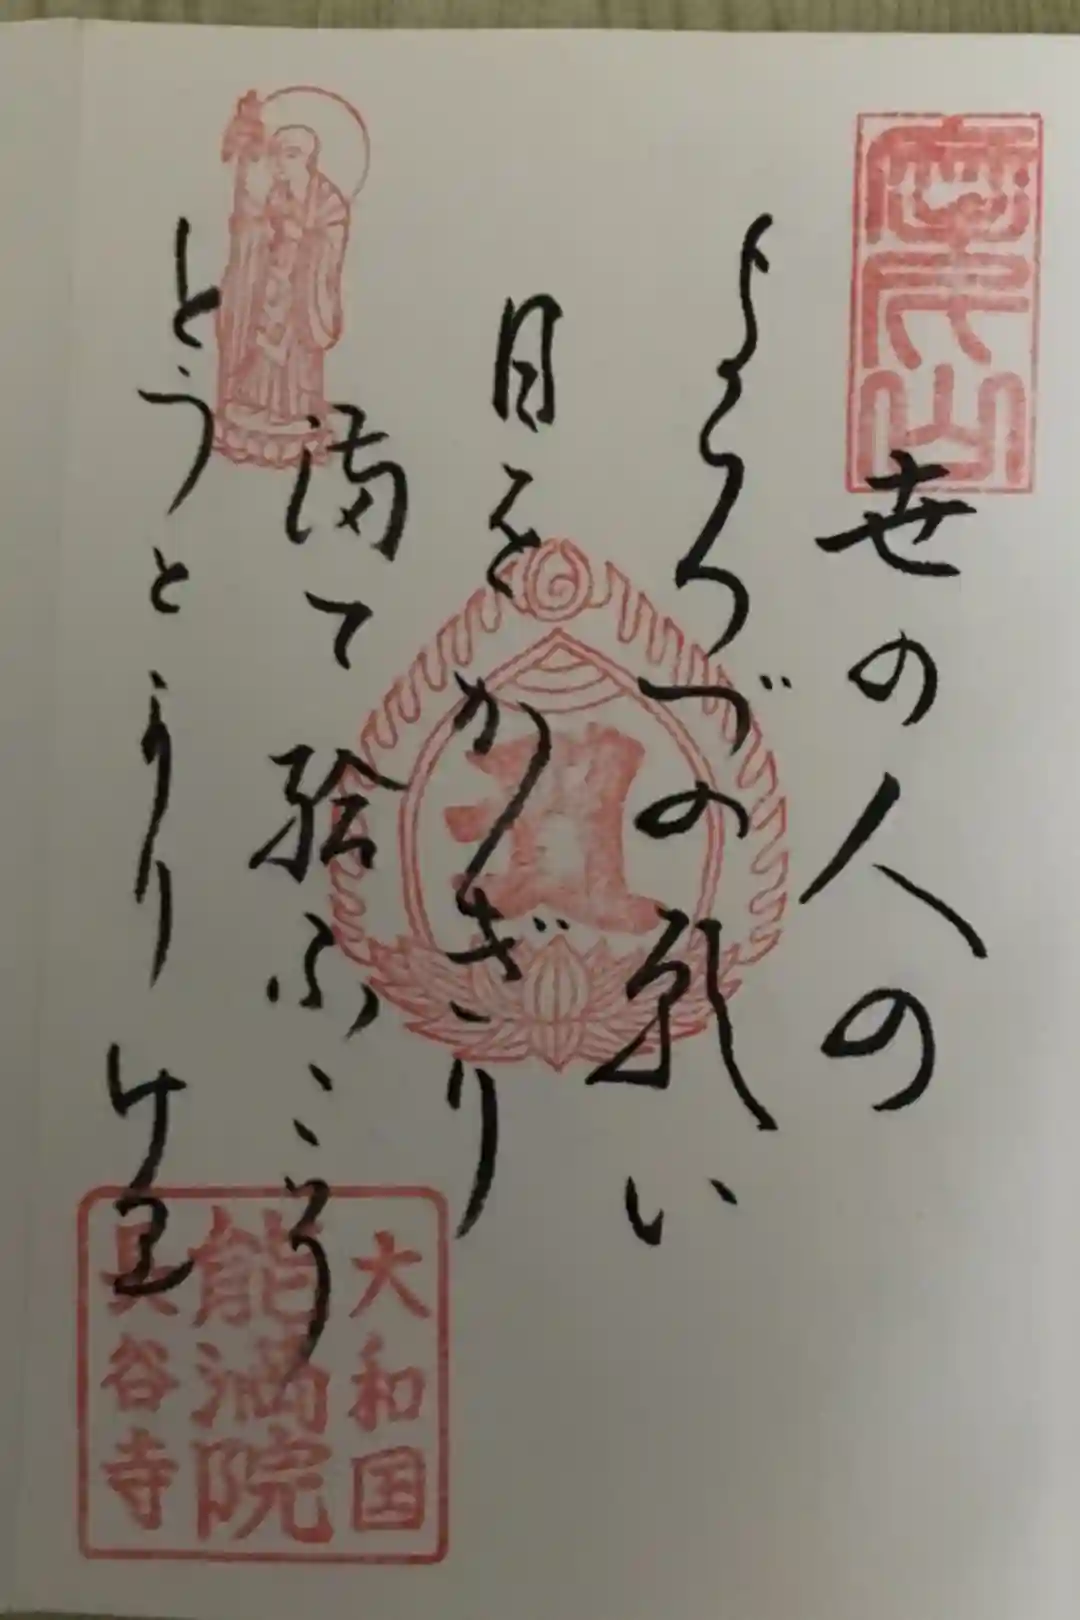 世の人の
よろづの願い
日をかぎり
満て給ふこそ
とうとかりけ里
大和国
能満院
長谷寺